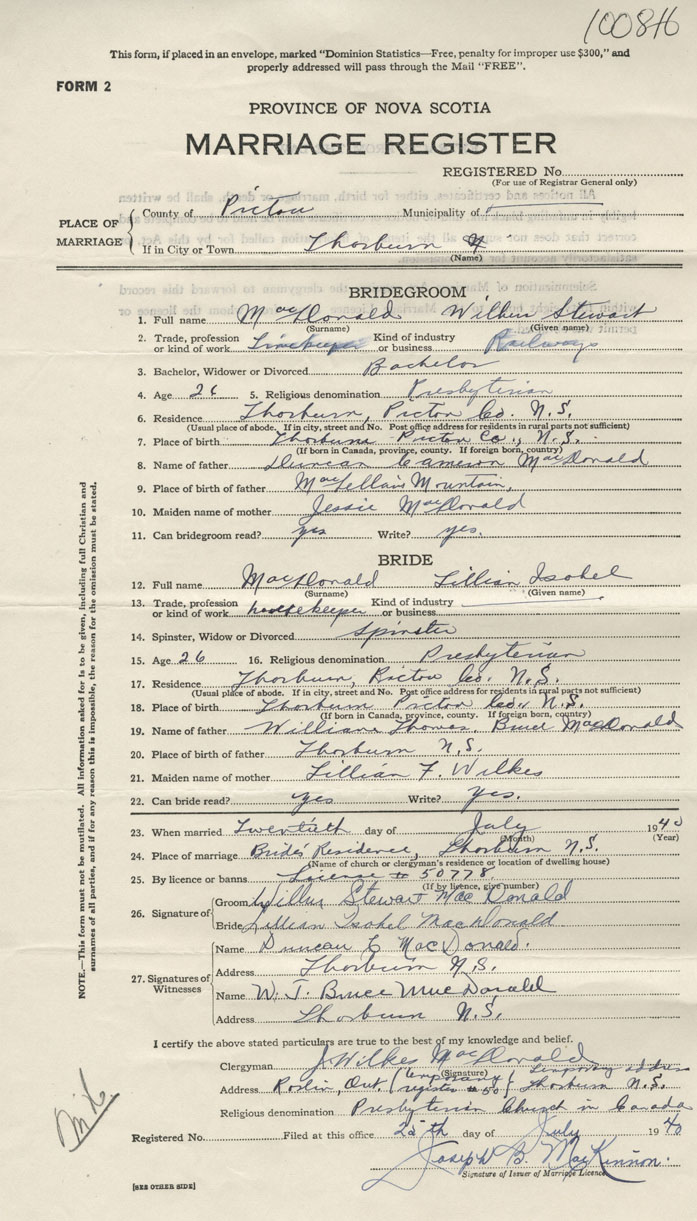 100846
This form, if placed in an envelope, marked "Dominion Statistics—Free, penalty for improper use $300," and
properly addressed will pass through the Mail "FREE".
FORM 2
PROVINCE OF NOVA SCOTIA
MARRIAGE REGISTER
REGISTERED No.
(For use of Registrar General only)
PLACE OF MARRIAGE
County of Pictou Municipality of
If in City or Town Thorburn
(Name)
BRIDEGROOM
1. Full name MacDonald Wilbur Stewart
(Surname) (Given name)
2. Trade, profession or kind of work Timekeeper Kind of industry or business Railways
3. Bachelor, Widower or Divorced Bachelor
4. Age 26 5. Religious denomination Presbyterian
6. Residence Thorburn, Pictou Co. N.S.
(Usual place of abode. If in city, street and No. Post office address for residents in rural parts not sufficient)
7. Place of birth Thorburn Pictou Co., N.S.
(If born in Canada, province, county. If foreign born, country)
8. Name of father Duncan Cameron MacDonald
9. Place of birth of father MacLellans Mountain,
10. Maiden name of mother Jessie MacDonald
11. Can bridegroom read? yes Write? yes.
BRIDE
12. Full name MacDonald Lillian Isobel
(Surname) (Given name)
13. Trade, profession or kind of work housekeeper Kind of industry or business
14. Spinster, Widow or Divorced Spinster
15. Age 26 16. Religious denomination Presbyterian
17. Residence Thorburn, Pictou Co. N.S.
(Usual place of abode. If in city, street and No. Post office address for residents in rural parts not sufficient)
18. Place of birth Thorburn Pictou Co., N.S.
(If born in Canada, province, county. If foreign born, country)
19. Name of father William Thomas Bruce MacDonald
20. Place of birth of father Thorburn N.S.
21. Maiden name of mother Lillian F. Wilkes
22. Can bride read? yes Write? yes.
23. When married Twentieth day of July 1940
(Month) (Year)
24. Place of marriage Bride's Residence, Thorburn N.S.
(Name of church or clergyman's residence or location of dwelling house)
25. By licence or banns License # 50778.
(If by licence, give number)
26. Signature of
Groom Wilbur Stewart MacDonald
Bride Lillian Isobel MacDonald
27. Signatures of Witnesses
Name Duncan C MacDonald.
Address Thorburn N.S.
Name W. T. Bruce MacDonald
Address Thorburn N.S.
I certify the above stated particulars are true to the best of my knowledge and belief.
Clergyman J Wilkes MacDonald
(Signature)
Address Roslin, Ont. (temporary register #50) temporary address Thorburn N.S.
Religious denomination Presbyterian Church in Canada
Registered No. Filed at this office 25th day of July 1940
Joseph B. MacKinnon.
Signature of Issuer of Marriage Licence
[SEE OTHER SIDE]
NOTE.—This form must not be mutilated. All information asked for is to be given, including full Christian and
surnames of all parties, and if for any reason this is impossible, the reason for the omission must be stated.